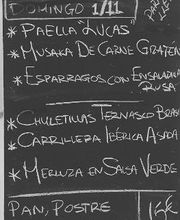 DOMINGO 1/11
* PAELLA "LUCAS"
* MUSAKA DE CARNE GRATEN
* ESPARRAGOS CON ENSALADILLA
RUSA
* CHULETILLAS TERNASCO BRAS
* CARRILLERA IBÉRICA ASADA
* MERLUZA EN SALSA VERDE
PAN, POSTRE